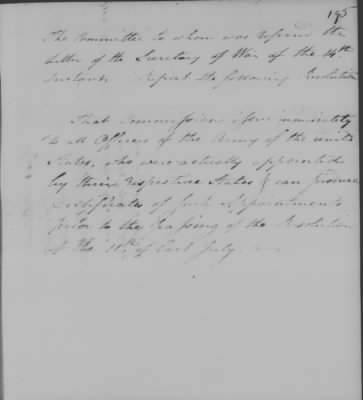 195
The Committee to whom was referred the
Letter of the Secretary of War of the 14th
Instant Report the following Resolution
That Commissions issue immediately
to all Officers of the Army of the united
States, who were actually appointed
by their respective States & can produce
Certificates of such Appointments
prior to the passing of the Resolution
of the of last July.